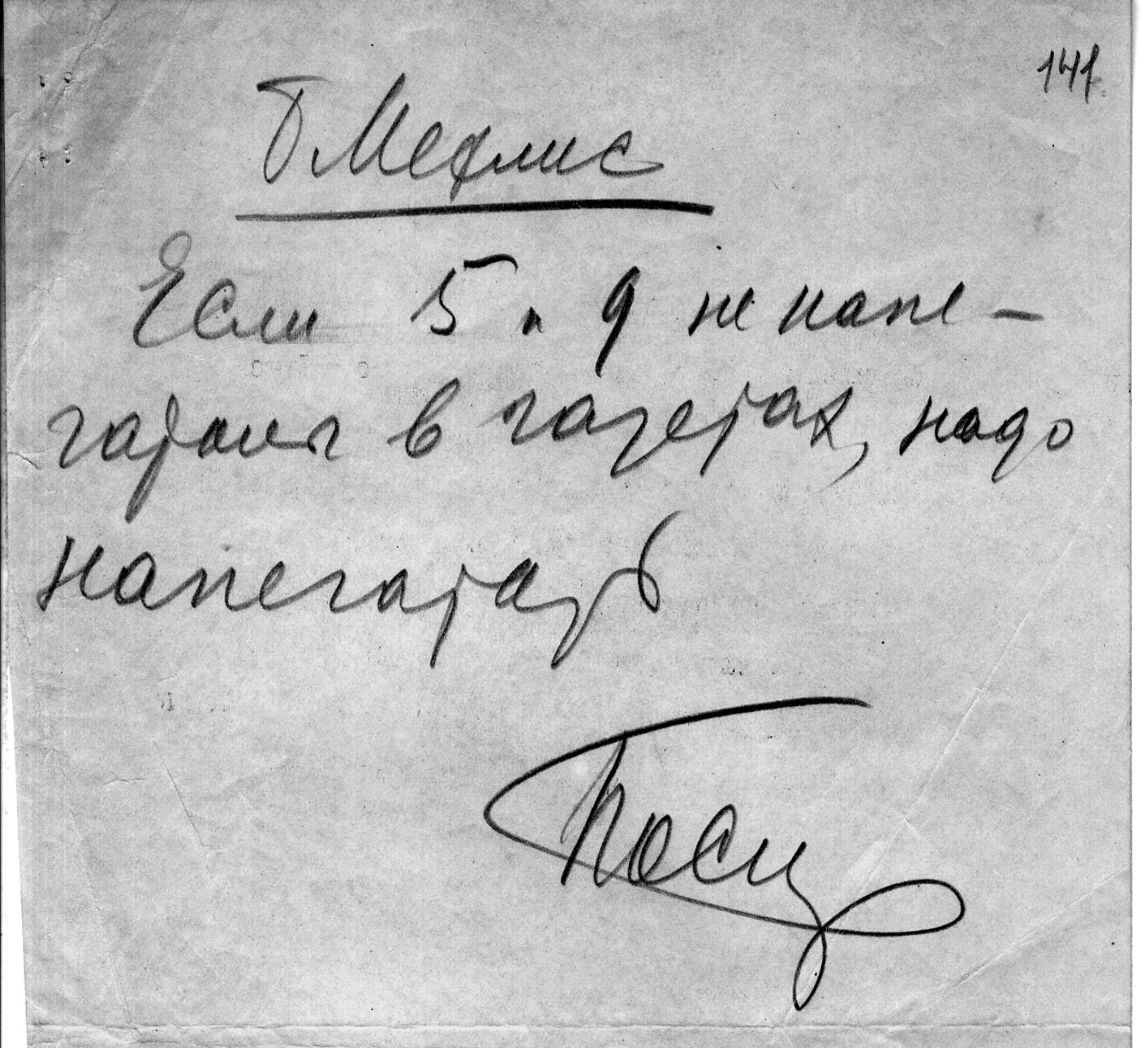 141
Т Мехлис
Если 5 и 9 не напе-
чатаны в газетах, надо
напечатать